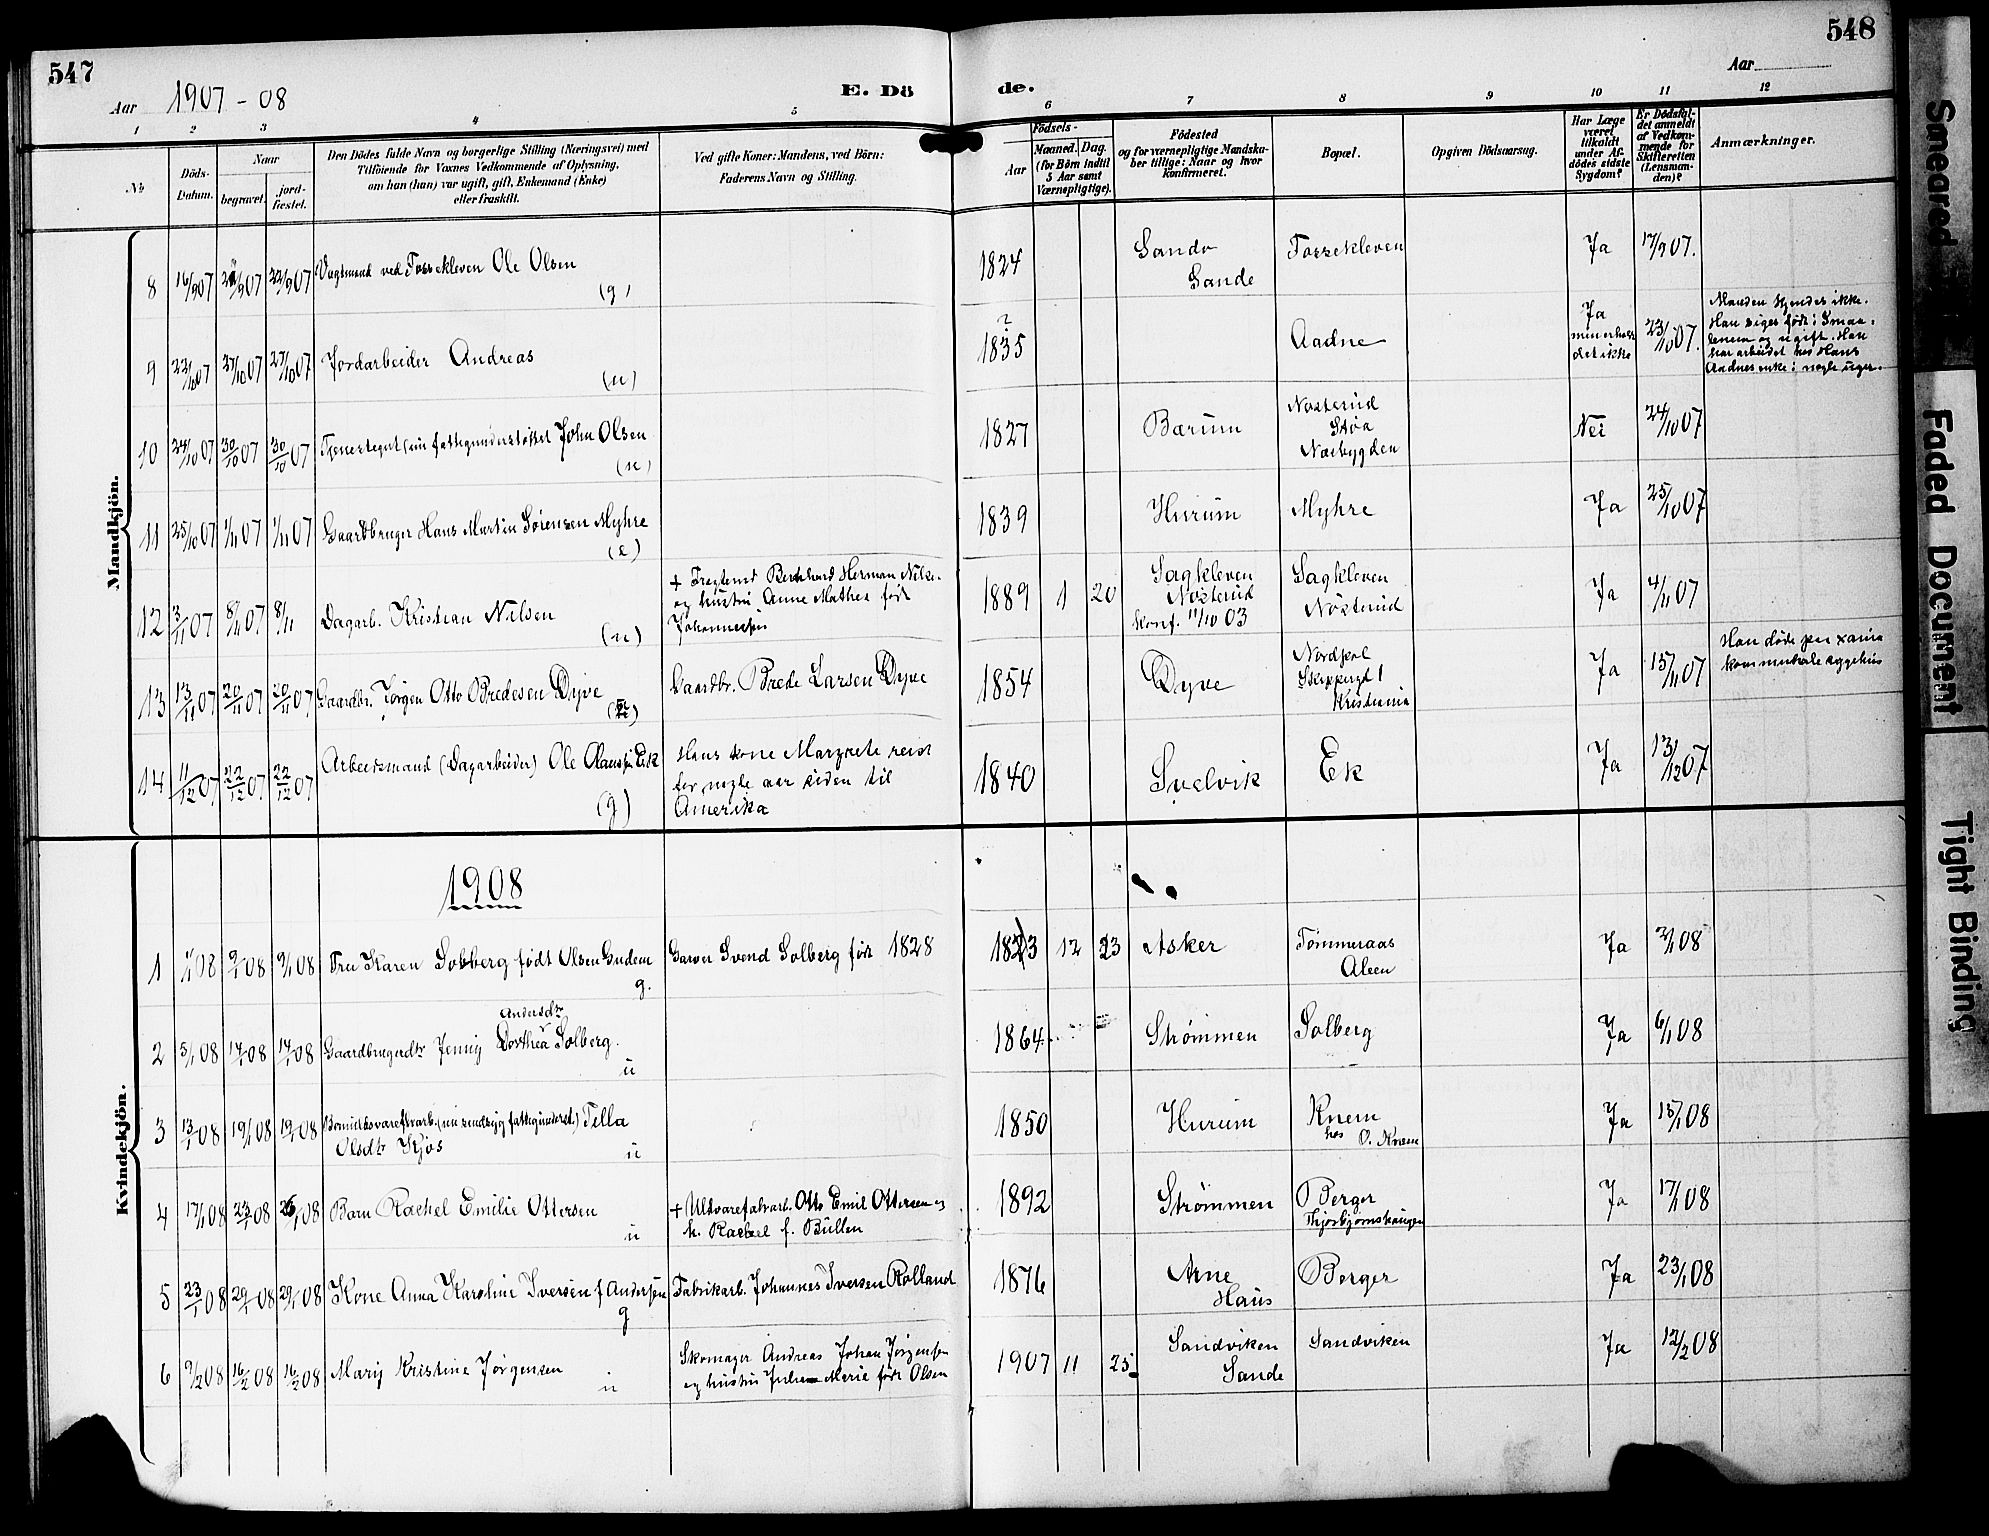 547
548
Aar 1907 - 08
E. Dö
de.
Aar
1 2 3 4 5 6 7 8 9 10 11 12
№
Döds-
Datum.
Naar
begravet.
jord-
fæstet.
Den Dödes fulde Navn og borgerlige Stilling (Næringsvei) med
Tilföiende for Voxnes Vedkommende af Oplysning,
om han (hun) var ugift, gift, Enkemand (Enke)
eller fraskilt.
Ved gifte Koner: Mandens, ved Börn:
Faderens Navn og Stilling.
Födsels-
Aar
Maaned. Dag.
(for Börn indtil
5 Aar samt
Værnepligtige).
Födested
og for værnepligtige Mandska-
ber tillige: Naar og hvor
konfirmeret.
Bopæl.
Opgiven Dödsaarsag.
Har Læge
været
tilkaldt
under Af-
dödes sidste
Sygdom?
Er Dödsfal-
det anmeldt
af Vedkom-
mende for
Skifteretten
(Lensman-
den)?
Anmærkninger.
Mandkjön.
8 16/9 07 22/9 07 22/9 07 Vagtmand ved Fossekleven Ole Olsen (g) 1824 Sande Fossekleven Ja 17/9 07.
Sande
9 22/10 07 27/10 07 27/10 07 Jordarbeider Andreas (u) ? 1835 Aadne Ja
men erholdt
det ikke 23/10 07.
Manden kjendes ikke.
Han siges født i Smaa-
lenene og ugift. Han
har arbeidet hos Hans
Aadnes enke i nogle uger.
10 24/10 07 30/10 07 30/10 07 Tjenestegut (nu fattigunderstøttet John Olsen (u) 1827 Bærum Nøsterud
Støa
Næsbygden Nei 24/10 07
11 25/10 07 1/11 07 1/11 07 Gaardbruger Hans Martin Sørensen Myhre (e) 1839 Hurum Myhre Ja 25/10 07
12 3/11 07 8/11 07 8/11 Dagarb. Kristian Nilsen (u)
+ Bernhard Herman Nilsen
og hustru Anne Mathea født
Johannessen
1889 1 20 Sagkleven
Nøsterud
Konf. 11/10 03
Sagkleven
Nøsterud Ja 4/11 07
13 13/11 07 20/11 07 20/11 07 Gaardbr. Jørgen Otto Bredesen Dyve Gaardbr. Brede Larsen Dyve 1854 Dyve Nordpol
Skippergd 1
Kristiania Ja 15/11 07
Han døde paa
kommunale sygehus
14 11/12 07 22/12 07 22/12 07 Arbeidsmand (Dagarbeider) Ole Olaussen Eik (g)
Hans kone Margrete reist
for nogle aar siden til
Amerika
1840 Svelvik Ek Ja 13/12 07
Kvindekjön.
1908
1 1/1 08 9/1 08 9/1 08 Fru Karen Solberg født Olsen Gudem g. Garver Svend Solberg født 1828 1823 12 23 Asker Tømmeraas
Aleen Ja 2/1 08
2 5/1 08 14/1 08 14/1 08 Gaardbrugerdtr Jenny Andersdtr Dorthea Solberg. u 1864 Strømmen Solberg Ja 6/1 08
3 13/1 08 19/1 08 19/1 08 Bomuldsvarefbrarb. (nu sindssyg fattigunderst.) Tilla
Olsdtr Kjos u 1850 Hurum Knem
hos O. Knem Ja 15/1 08
4 17/1 08 23/1 08 26/1 08 Barn Rachel Emilie Ottersen u
+ Uldvarefabrarb. Otto Emil Ottersen og
h. Rachel f. Bullen
1892 Strømmen Berger
Thjosbjørnshaugen Ja 17/1 08
5 23/1 08 29/1 08 29/1 08 Kone Anna Karoline Iversen f Andersen g Fabrikarb. Johannes Iversen Rolland 1876 Arne
Haus Berger Ja 23/1 08
6 9/2 08 16/2 08 16/2 08 Mary Kristine Jørgensen u
Skomager Andreas Johan Jørgensen
og hustru Julie Marie født Olsen
1907 11 25 Sandviken
Sande Sandviken Ja 12/2 08
Smeared
Faded Document
Tight Binding